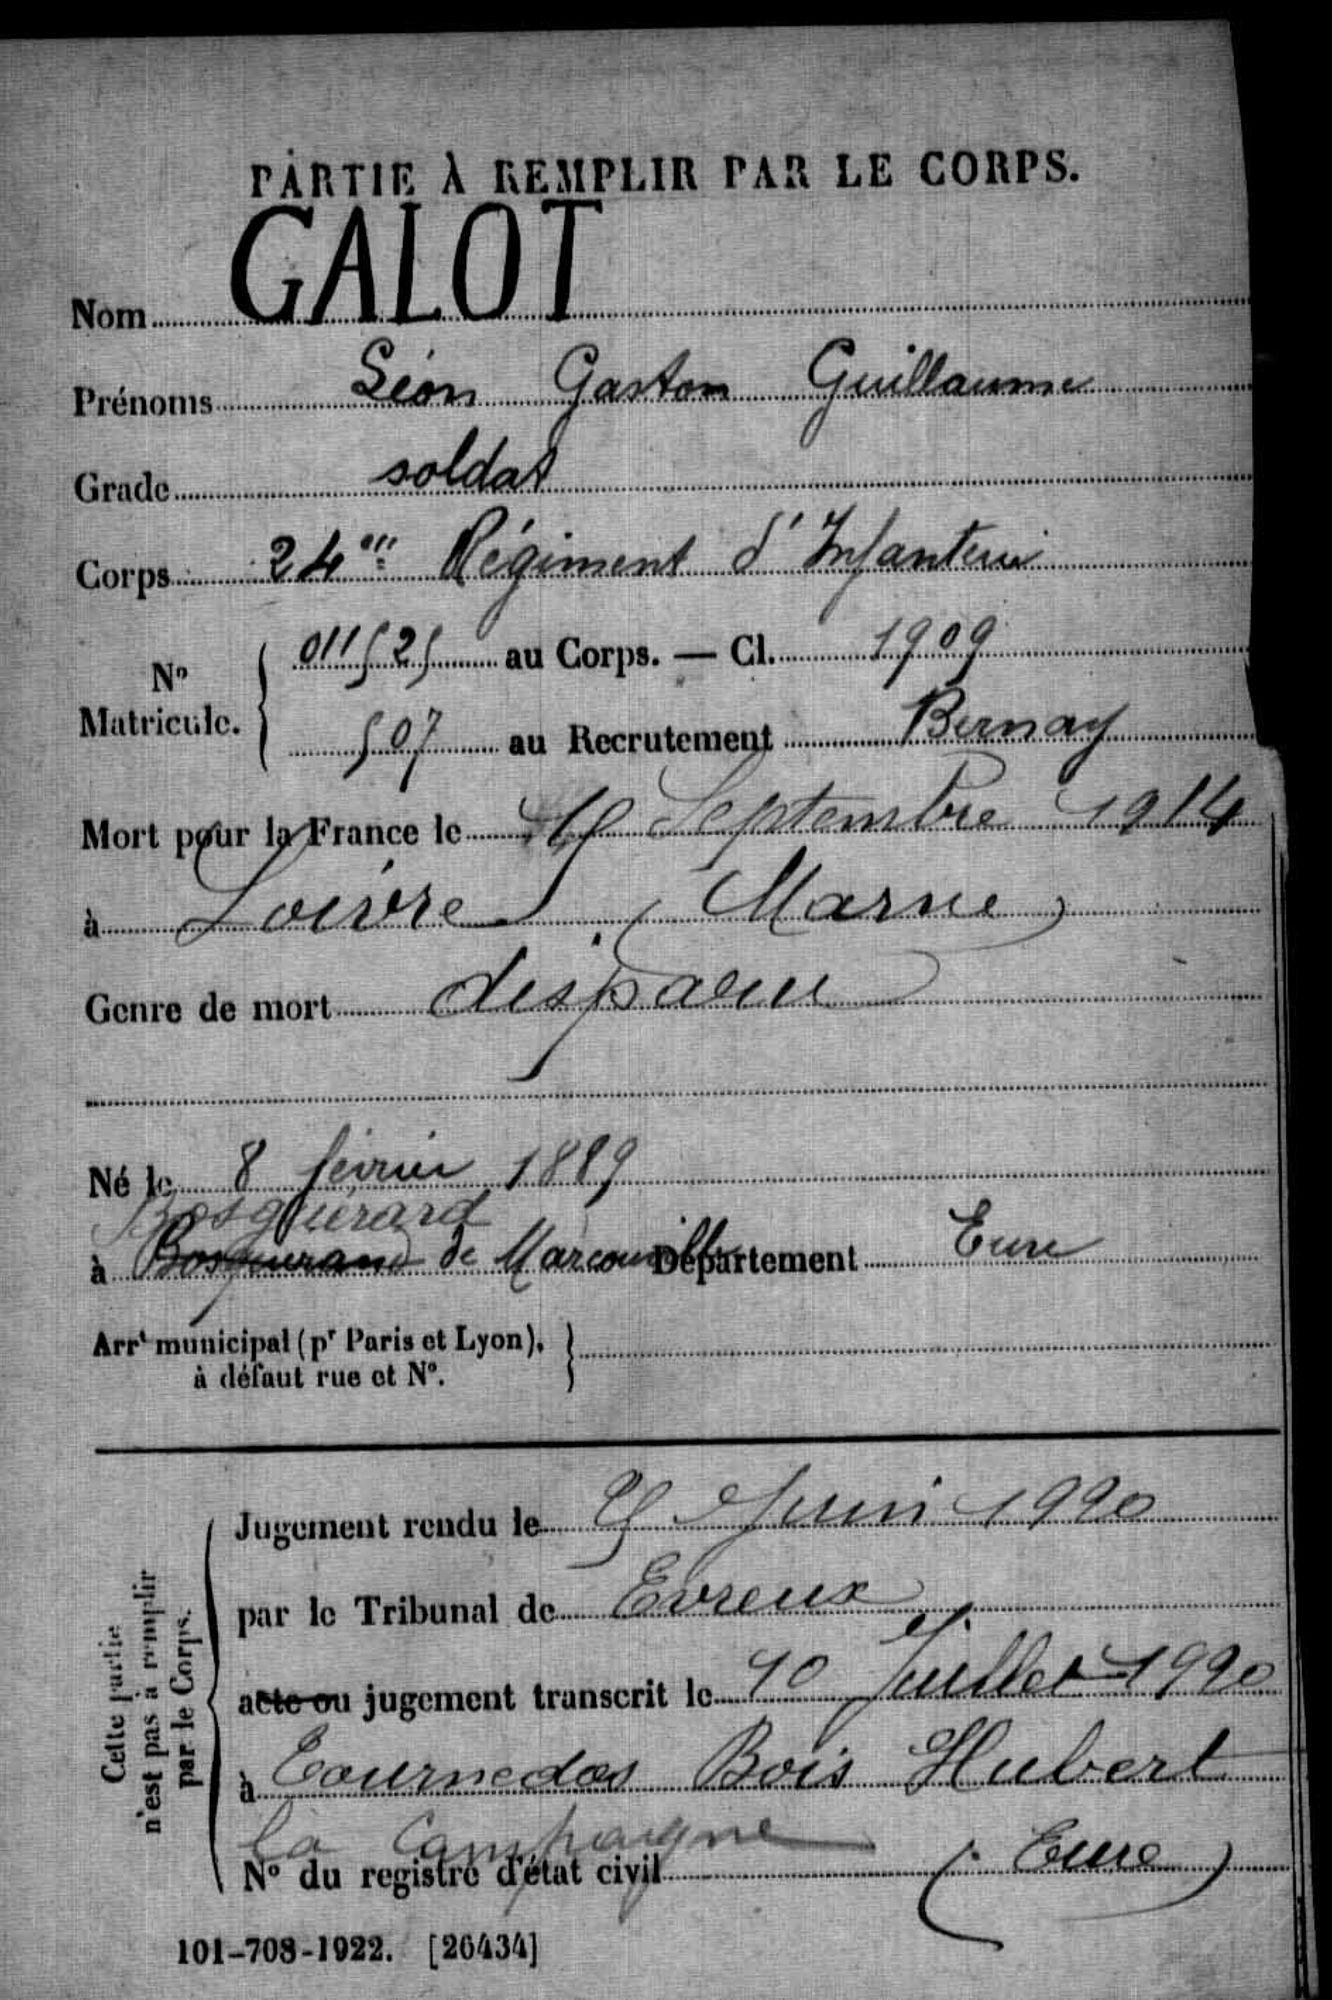 PARTIE À REMPLIR PAR LE CORPS.
Nom GALOT
Prénoms Léon Gaston Guillaume
Grade soldat
Corps 24me Régiment d'Infanterie
No Matricule. { 011525 au Corps. — Cl. 1909
507 au Recrutement Bernay
Mort pour la France le Septembre 1914
à Loivre (Marne)
Genre de mort disparu
Né le 8 février 1889
Bosguérard
à Bosguerand de Marcouville Département Eure
Arrt municipal (pr Paris et Lyon), }
à défaut rue et No.
Cette partie
n'est pas à remplir
par le Corps.
Jugement rendu le 25 Juin 1920
par le Tribunal de Evreux
acte ou jugement transcrit le 10 Juillet 1920
à Tournedos Bois Hubert
la Campagne (Eure)
No du registre d'état civil
101-708-1922. [26434]